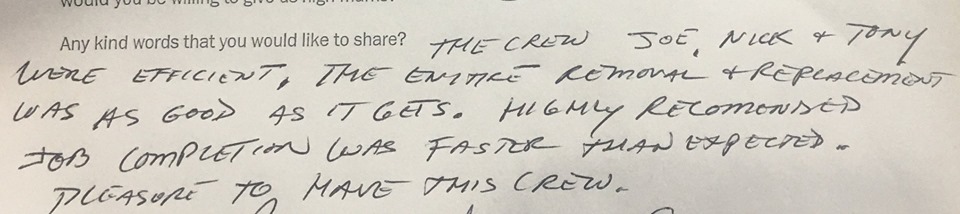 would you be willing to give us high marks?
Any kind words that you would like to share? THE CREW JOE, NICK + TONY
WERE EFFICIENT, THE ENTIRE REMOVAL + REPLACEMENT
WAS AS GOOD AS IT GETS. HIGHLY RECOMONDSED
JOB COMPLETION WAS FASTER THAN EXPECTED.
PLEASURE TO HAVE THIS CREW.